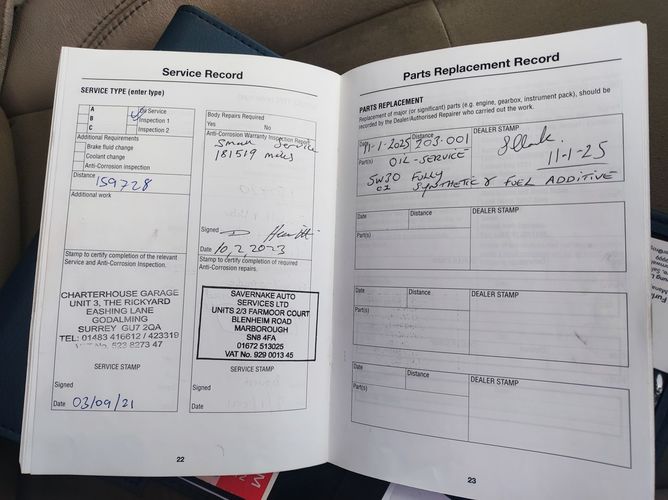 Service Record
SERVICE TYPE (enter type)
A
B
C
Oil Service
Inspection 1
Inspection 2
Additional Requirements
Brake fluid change
Coolant change
Anti-corrosion inspection
Distance
159728
Additional work
Stamp to certify completion of the relevant
Service and Anti-Corrosion Inspection.
CHARTERHOUSE GARAGE
UNIT 3, THE RICKYARD
EASHING LANE
GODALMING
SURREY GU7 2QA
TEL: 01483 416612 / 423319
VAT No. 523 8273 47
SERVICE STAMP
Signed
Date 03/09/21
Body Repairs Required
Yes No
Anti-Corrosion Warranty Inspection Report
Small Service
181519 miles
Signed
Date 10,2,2023
Stamp to certify completion of required
Anti-Corrosion repairs.
SAVERNAKE AUTO
SERVICES LTD
UNITS 2/3 FARMOOR COURT
BLENHEIM ROAD
MARBOROUGH
SN8 4FA
01672 513025
VAT No. 929 0013 45
SERVICE STAMP
Signed
Date
22
Parts Replacement Record
PARTS REPLACEMENT
Replacement of major (or significant) parts (e.g. engine, gearbox, instrument pack), should be
recorded by the Dealer/Authorised Repairer who carried out the work.
Date Distance DEALER STAMP
11-1-2025 203.001
Part(s) OIL-SERVICE 11-1-25
5W30 FULLY SYNTHETIC & FUEL ADDITIVE
Date Distance DEALER STAMP
Part(s)
Date Distance DEALER STAMP
Part(s)
Date Distance DEALER STAMP
Part(s)
23